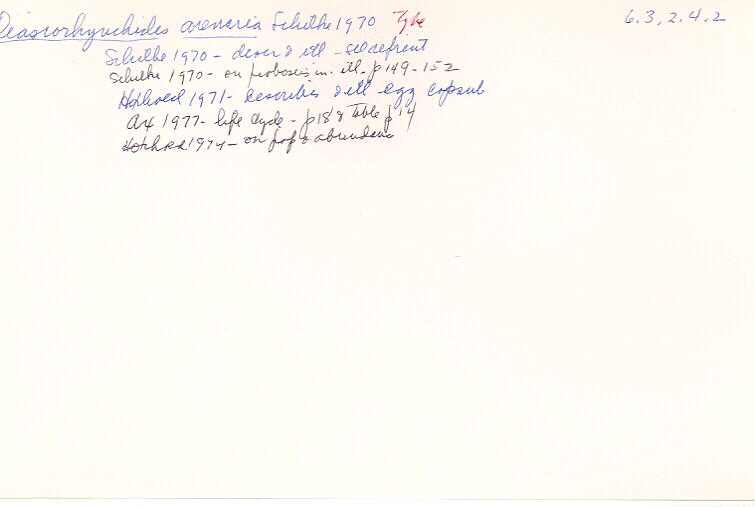 Diascorhynchides arenaria Schilke 1970 Type 6.3,2.4.2
Schilke 1970 - descr & ill - see reprint
Schilke 1970 - on proboscis in. ill. p 149-152
Hoxhold 1971 - describes & ill egg capsule
Ax 1977 - life cycle - p 18 & Table p 14
Hoxhold 1974 - on pop & abundance